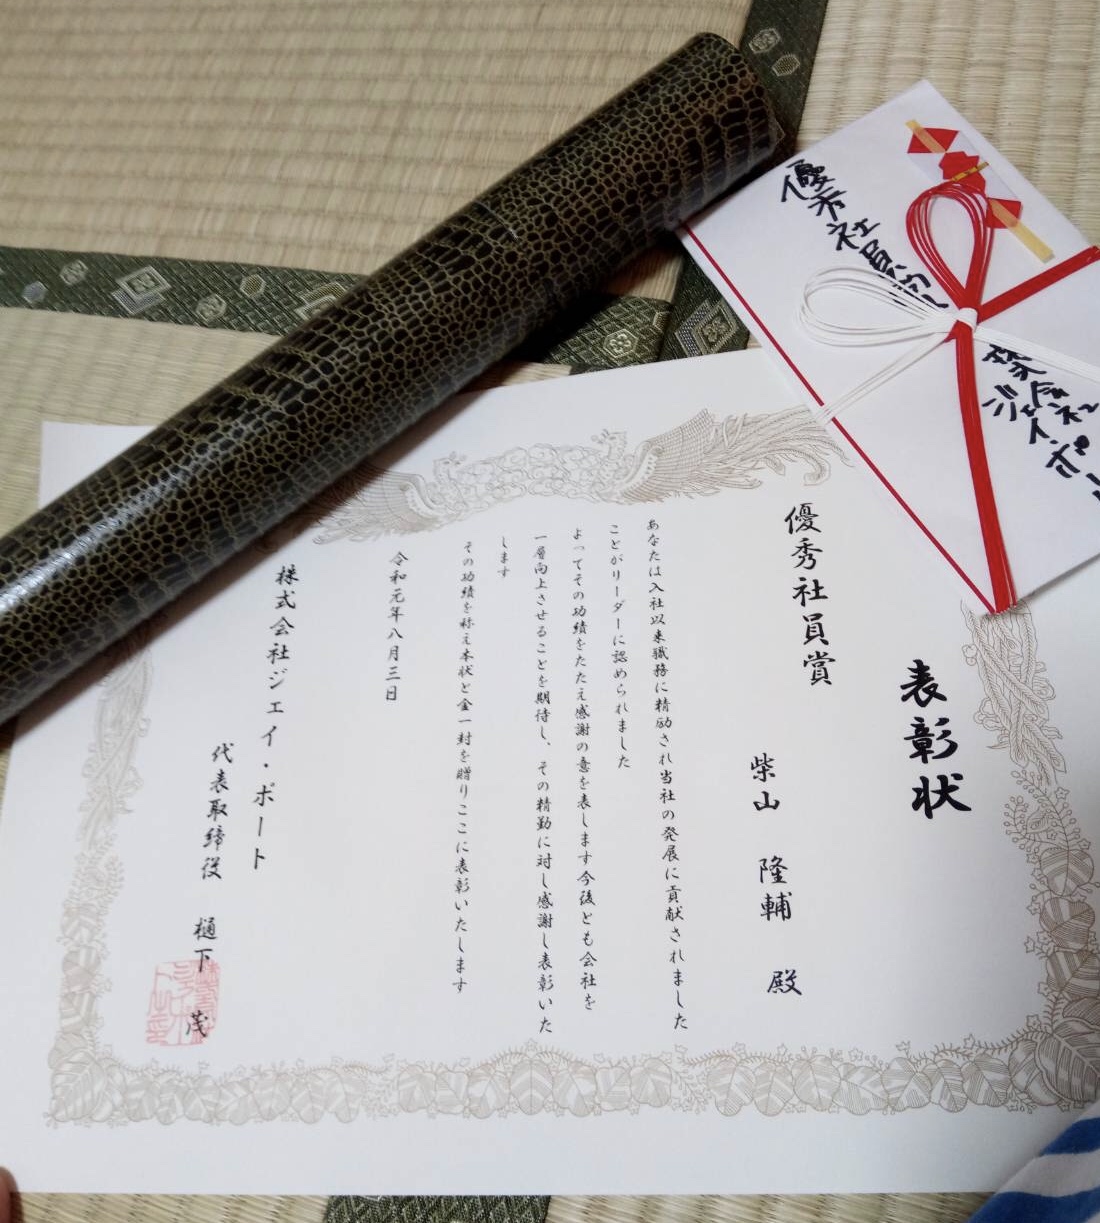 表彰状
優秀社員賞
柴山 隆輔 殿
あなたは入社以来職務に精励され当社の発展に貢献されました
ことがリーダーに認められました
よってその功績をたたえ感謝の意を表します今後とも会社を
一層向上させることを期待し、その精勤に対し感謝し表彰いた
します
その功績を称え本状と金一封を贈りここに表彰いたします
令和元年八月三日
株式会社ジェイ・ポート
代表取締役 樋下 茂
優秀社員
株式会社
ジェイ・ポー